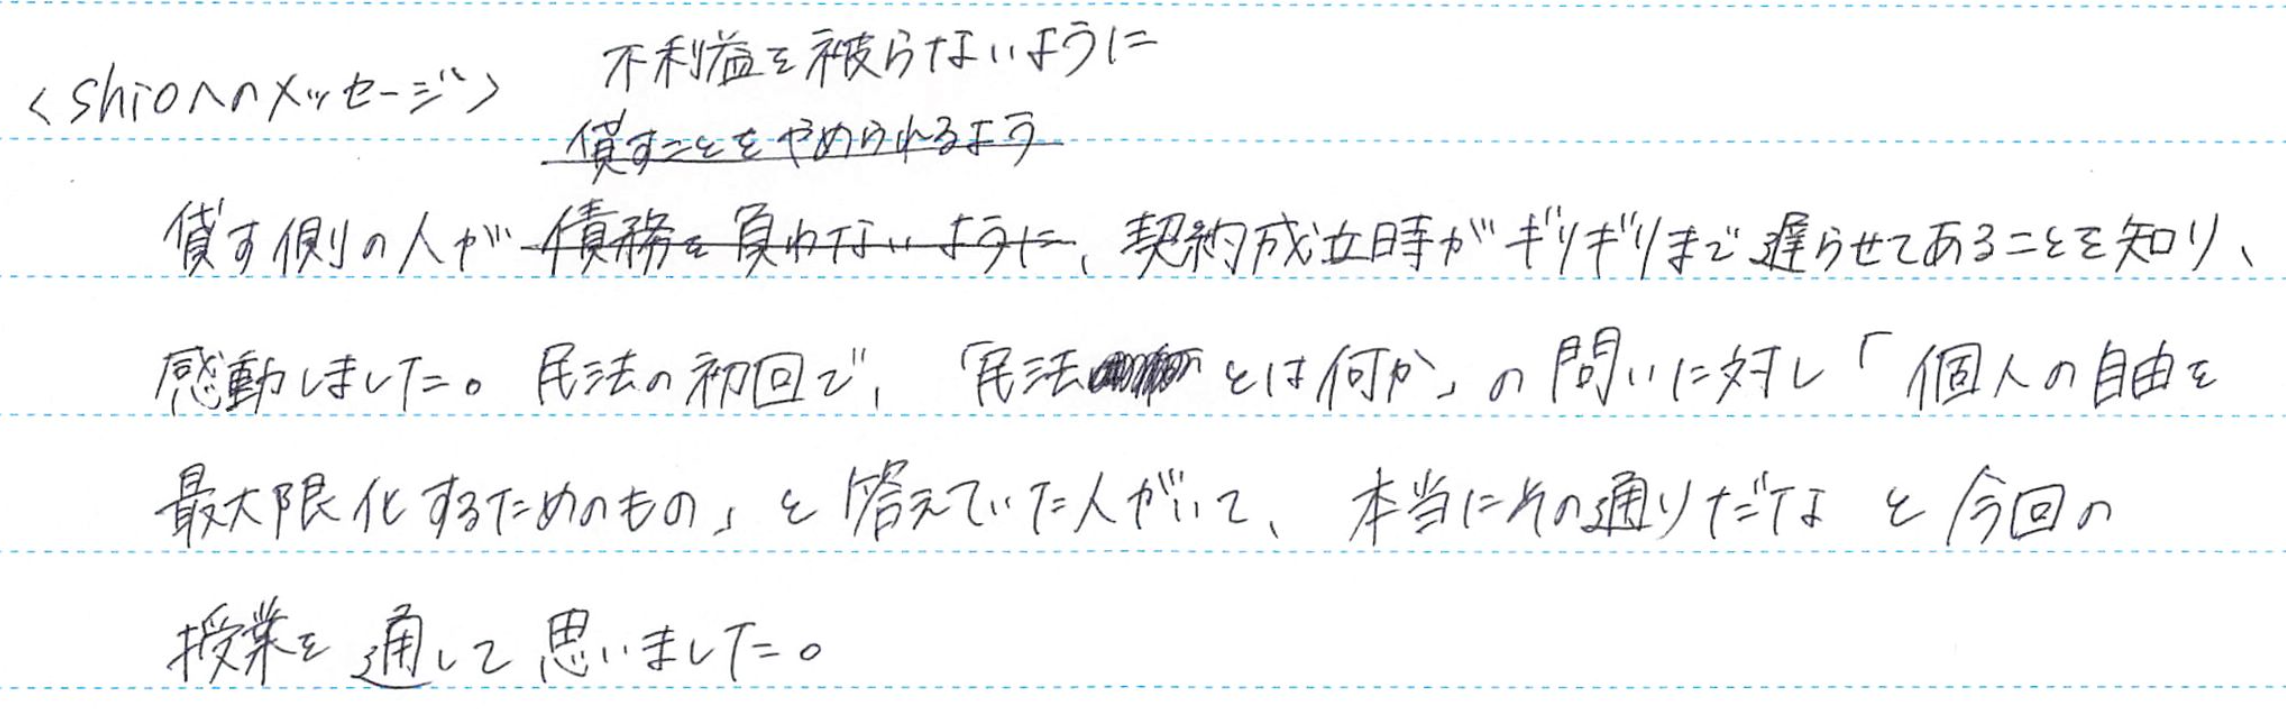 <shioへのメッセージ>
不利益を被らないように
貸すことをやめられるよう
貸す側の人が債務を負わないように、契約成立時がギリギリまで遅らせてあることを知り、
感動しました。民法の初回で、「民法とは何か」の問いに対し「個人の自由を
最大限化するためのもの」と答えていた人がいて、本当にその通りだなと今回の
授業を通して思いました。